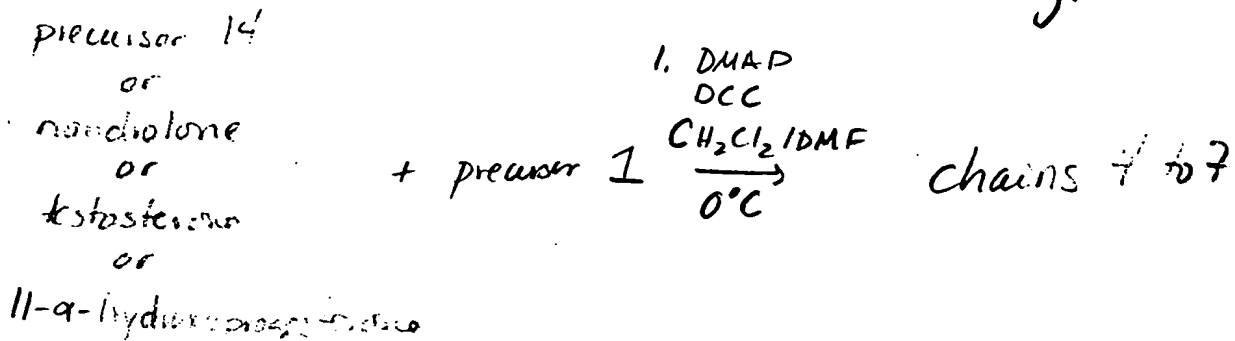 precursor 14
or
nandrolone
or
testosterone
or
11-α-hydroxyprogesterone
+ precursor 1
1. DMAP
DCC
CH₂Cl₂/DMF
0°C
chains 4 to 7